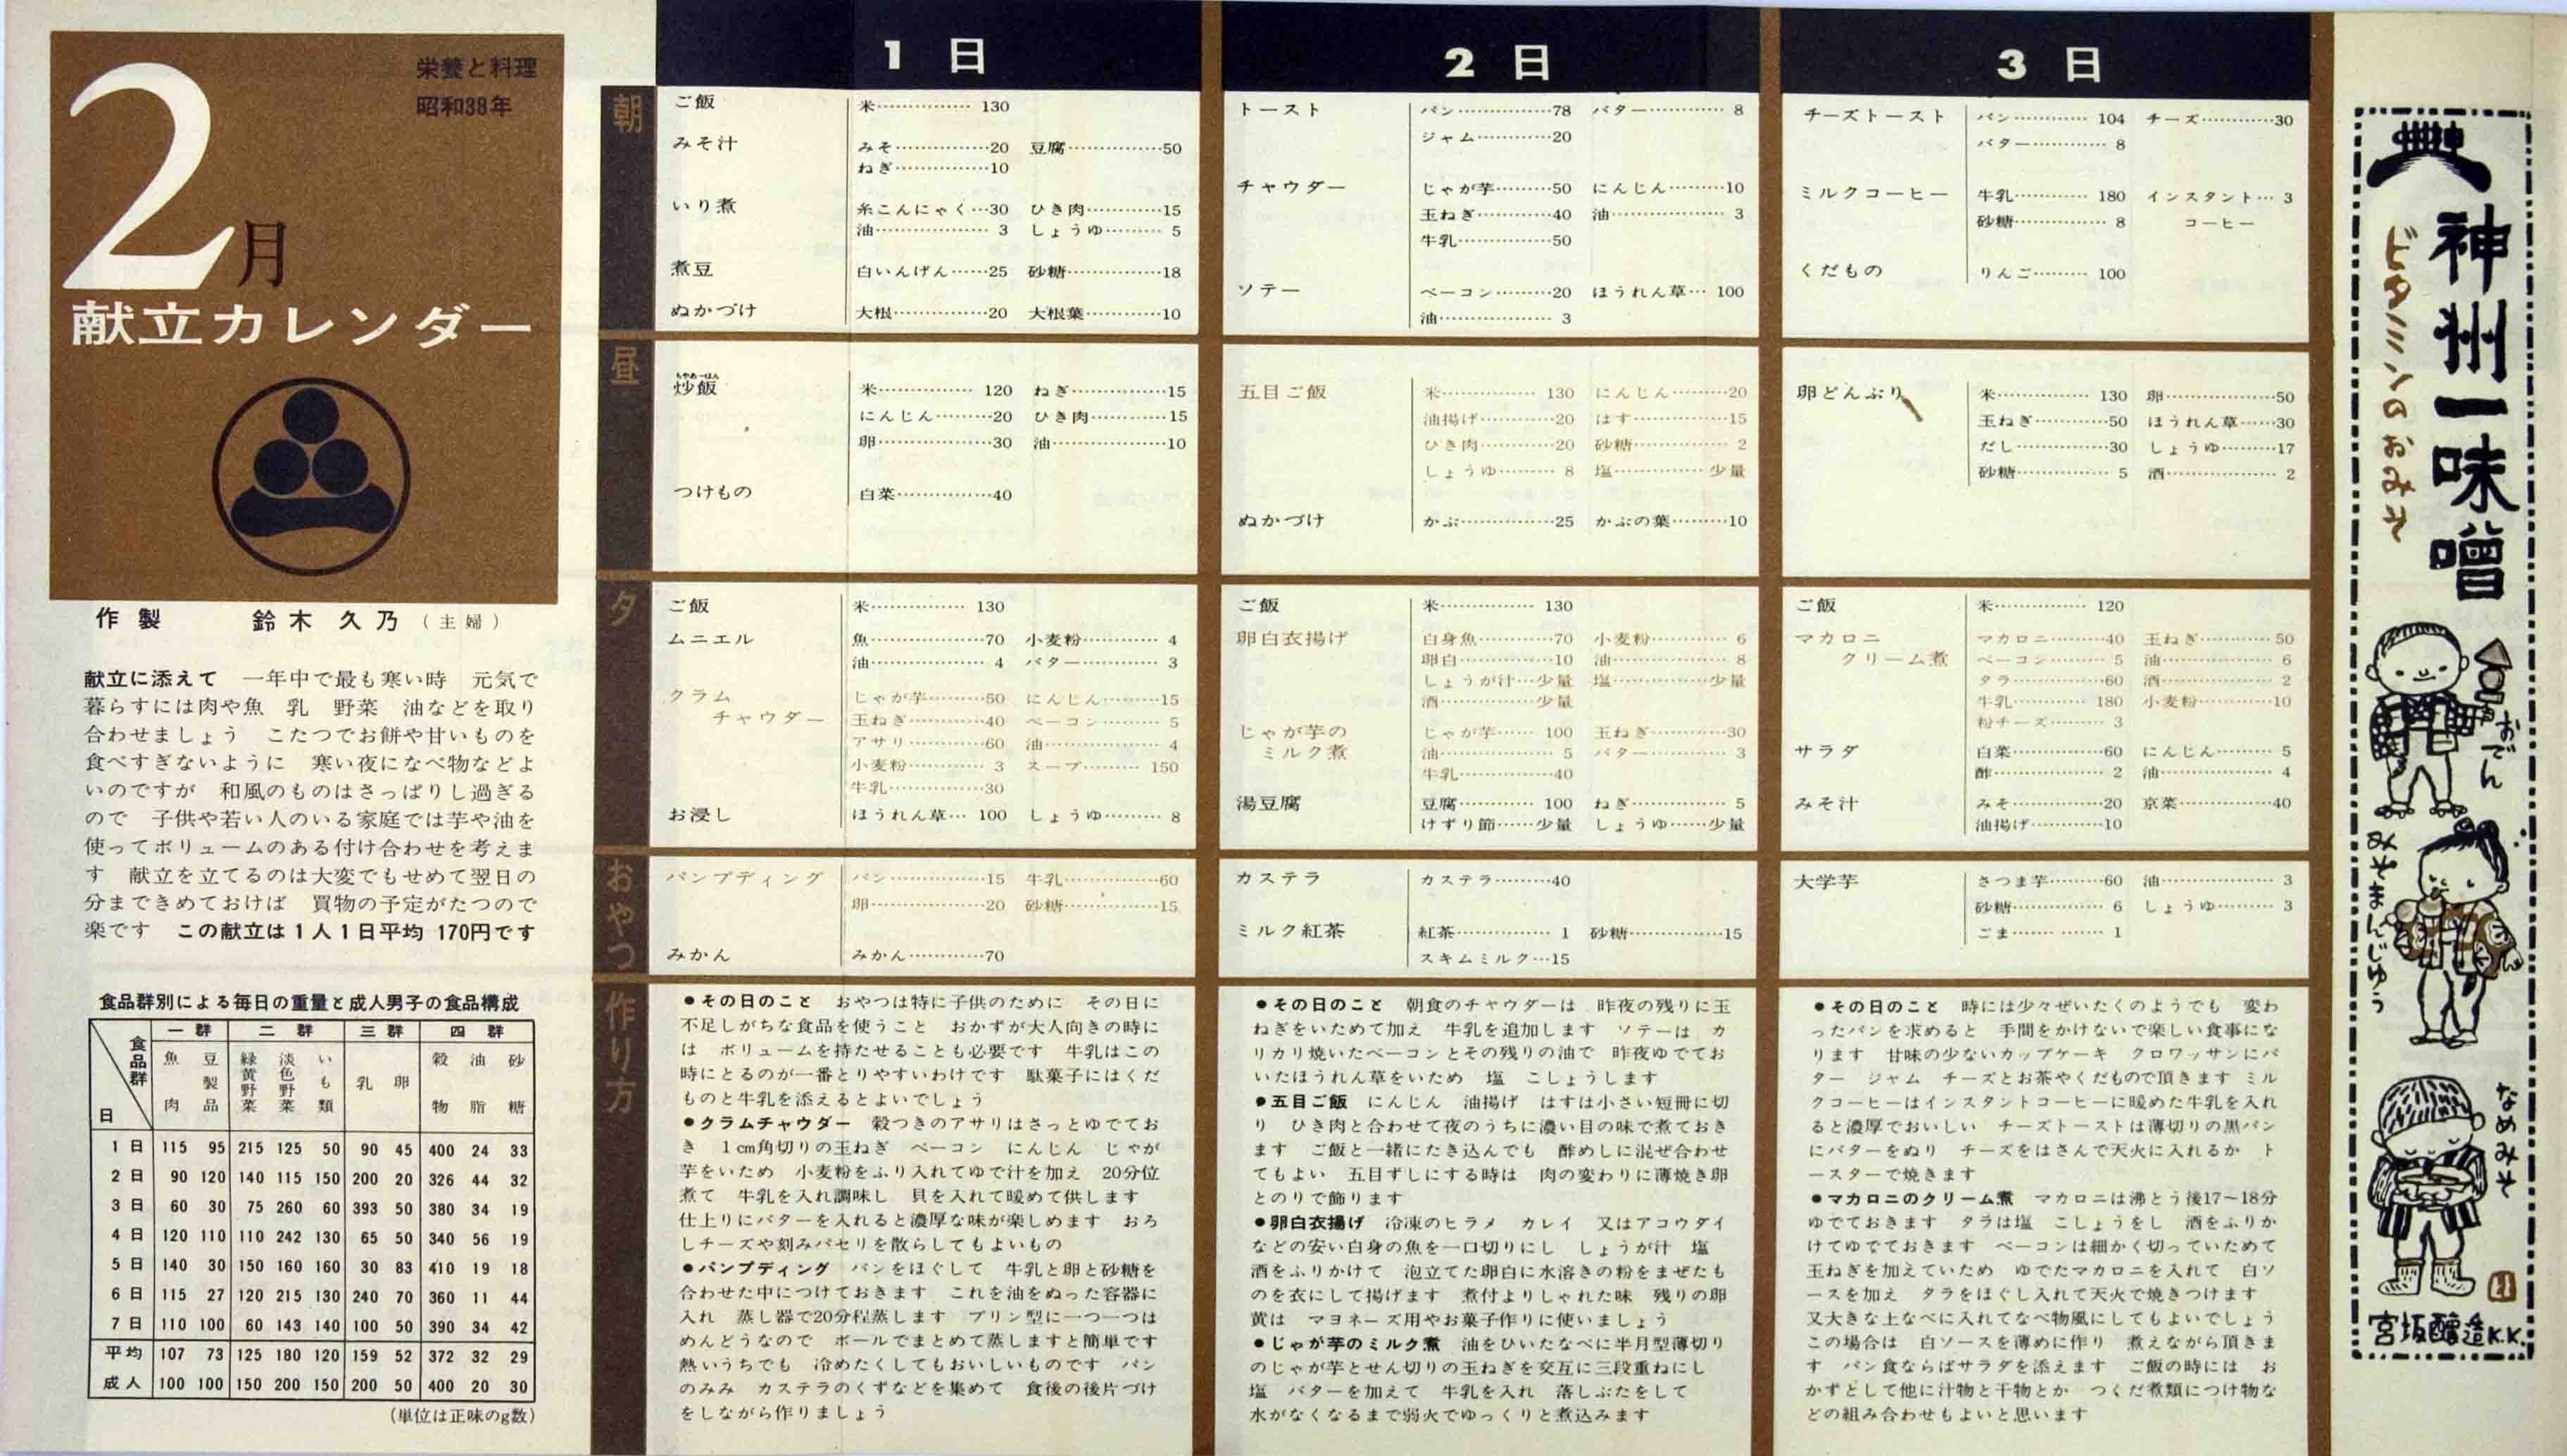 2月
栄養と料理
昭和38年
献立カレンダー
作製 鈴木久乃（主婦）
献立に添えて 一年中で最も寒い時 元気で
暮らすには肉や魚 乳 野菜 油などを取り
合わせましょう こたつでお餅や甘いものを
食べすぎないように 寒い夜になべ物などよ
いのですが 和風のものはさっぱりし過ぎる
ので 子供や若い人のいる家庭では芋や油を
使ってボリュームのある付け合わせを考えま
す 献立を立てるのは大変でもせめて翌日の
分まできめておけば 買物の予定がたつので
楽です この献立は1人1日平均 170円です
食品群別による毎日の重量と成人男子の食品構成
食品群 日 一群 二群 三群 四群
魚肉 豆製品 緑黄野菜 淡色野菜 いも類 乳 卵 穀物 油脂 砂糖
1日 115 95 215 125 50 90 45 400 24 33
2日 90 120 140 115 150 200 20 326 44 32
3日 60 30 75 260 60 393 50 380 34 19
4日 120 110 110 242 130 65 50 340 56 19
5日 140 30 150 160 160 30 83 410 19 18
6日 115 27 120 215 130 240 70 360 11 44
7日 110 100 60 143 140 100 50 390 34 42
平均 107 73 125 180 120 159 52 372 32 29
成人 100 100 150 200 150 200 50 400 20 30
（単位は正味のg数）
1日
朝
ご飯 米…………… 130
みそ汁 みそ……………20 豆腐……………50
ねぎ……………10
いり煮 糸こんにゃく…30 ひき肉…………15
油……………… 3 しょうゆ……… 5
煮豆 白いんげん……25 砂糖……………18
ぬかづけ 大根……………20 大根葉…………10
昼
炒飯 米…………… 120 ねぎ……………15
にんじん………20 ひき肉…………15
卵………………30 油………………10
つけもの 白菜……………40
夕
ご飯 米…………… 130
ムニエル 魚………………70 小麦粉………… 4
油……………… 4 バター………… 3
クラム じゃが芋………50 にんじん………15
チャウダー 玉ねぎ…………40 ベーコン……… 5
アサリ…………60 油……………… 4
小麦粉………… 3 スープ……… 150
牛乳……………30
お浸し ほうれん草… 100 しょうゆ……… 8
おやつ
パンプディング パン……………15 牛乳……………60
卵………………20 砂糖……………15
みかん みかん…………70
作り方
●その日のこと おやつは特に子供のために その日に
不足しがちな食品を使うこと おかずが大人向きの時に
は ボリュームを持たせることも必要です 牛乳はこの
時にとるのが一番とりやすいわけです 駄菓子にはくだ
ものと牛乳を添えるとよいでしょう
●クラムチャウダー 殻つきのアサリはさっとゆでてお
き 1cm角切りの玉ねぎ ベーコン にんじん じゃが
芋をいため 小麦粉をふり入れてゆで汁を加え 20分位
煮て 牛乳を入れ調味し 貝を入れて暖めて供します
仕上りにバターを入れると濃厚な味が楽しめます おろ
しチーズや刻みパセリを散らしてもよいもの
●パンプディング パンをほぐして 牛乳と卵と砂糖を
合わせた中につけておきます これを油をぬった容器に
入れ 蒸し器で20分程蒸します プリン型に一つ一つは
めんどうなので ボールでまとめて蒸しますと簡単です
熱いうちでも 冷めたくしてもおいしいものです パン
のみみ カステラのくずなどを集めて 食後の後片づけ
をしながら作りましょう
2日
トースト パン……………78 バター………… 8
ジャム…………20
チャウダー じゃが芋………50 にんじん………10
玉ねぎ…………40 油……………… 3
牛乳……………50
ソテー ベーコン………20 ほうれん草… 100
油……………… 3
五目ご飯 米…………… 130 にんじん………20
油揚げ…………20 はす……………15
ひき肉…………20 砂糖…………… 2
しょうゆ……… 8 塩…………少量
ぬかづけ かぶ……………25 かぶの葉………10
ご飯 米…………… 130
卵白衣揚げ 白身魚…………70 小麦粉………… 6
卵白……………10 油……………… 8
しょうが汁…少量 塩…………少量
酒…………少量
じゃが芋の じゃが芋…… 100 玉ねぎ…………30
ミルク煮 油……………… 5 バター………… 3
牛乳……………40
湯豆腐 豆腐………… 100 ねぎ…………… 5
けずり節……少量 しょうゆ……少量
カステラ カステラ………40
ミルク紅茶 紅茶…………… 1 砂糖……………15
スキムミルク…15
●その日のこと 朝食のチャウダーは 昨夜の残りに玉
ねぎをいためて加え 牛乳を追加します ソテーは カ
リカリ焼いたベーコンとその残りの油で 昨夜ゆでてお
いたほうれん草をいため 塩 こしょうします
●五目ご飯 にんじん 油揚げ はすは小さい短冊に切
り ひき肉と合わせて夜のうちに濃い目の味で煮ておき
ます ご飯と一緒にたき込んでも 酢めしに混ぜ合わせ
てもよい 五目ずしにする時は 肉の変わりに薄焼き卵
とのりで飾ります
●卵白衣揚げ 冷凍のヒラメ カレイ 又はアコウダイ
などの安い白身の魚を一口切りにし しょうが汁 塩
酒をふりかけて 泡立てた卵白に水溶きの粉をまぜたも
のを衣にして揚げます 煮付よりしゃれた味 残りの卵
黄は マヨネーズ用やお菓子作りに使いましょう
●じゃが芋のミルク煮 油をひいたなべに半月型薄切り
のじゃが芋とせん切りの玉ねぎを交互に三段重ねにし
塩 バターを加えて 牛乳を入れ 落しぶたをして
水がなくなるまで弱火でゆっくりと煮込みます
3日
チーズトースト パン………… 104 チーズ…………30
バター………… 8
ミルクコーヒー 牛乳………… 180 インスタント… 3
砂糖…………… 8 コーヒー
くだもの りんご……… 100
卵どんぶり 米…………… 130 卵………………50
玉ねぎ…………50 ほうれん草……30
だし……………30 しょうゆ………17
砂糖…………… 5 酒……………… 2
ご飯 米…………… 120
マカロニ マカロニ………40 玉ねぎ…………50
クリーム煮 ベーコン……… 5 油……………… 6
タラ……………60 酒……………… 2
牛乳………… 180 小麦粉…………10
粉チーズ……… 3
サラダ 白菜……………60 にんじん……… 5
酢……………… 2 油……………… 4
みそ汁 みそ……………20 京菜……………40
油揚げ…………10
大学芋 さつま芋………60 油……………… 3
砂糖…………… 6 しょうゆ……… 3
ごま…………… 1
●その日のこと 時には少々ぜいたくのようでも 変わ
ったパンを求めると 手間をかけないで楽しい食事にな
ります 甘味の少ないカップケーキ クロワッサンにバ
ター ジャム チーズとお茶やくだもので頂きます ミル
クコーヒーはインスタントコーヒーに暖めた牛乳を入れ
ると濃厚でおいしい チーズトーストは薄切りの黒パン
にバターをぬり チーズをはさんで天火に入れるか ト
ースターで焼きます
●マカロニのクリーム煮 マカロニは沸とう後17～18分
ゆでておきます タラは塩 こしょうをし 酒をふりか
けてゆでておきます ベーコンは細かく切っていためて
玉ねぎを加えていため ゆでたマカロニを入れて 白ソ
ースを加え タラをほぐし入れて天火で焼きつけます
又大きな土なべに入れてなべ物風にしてもよいでしょう
この場合は 白ソースを薄めに作り 煮えながら頂きま
す パン食ならばサラダを添えます ご飯の時には お
かずとして他に汁物と干物とか つくだ煮類につけ物な
どの組み合わせもよいと思います
神州一味噌
ビタミンのおみそ
おでん
みそまんじゅう
なめみそ
宮坂醸造K.K.